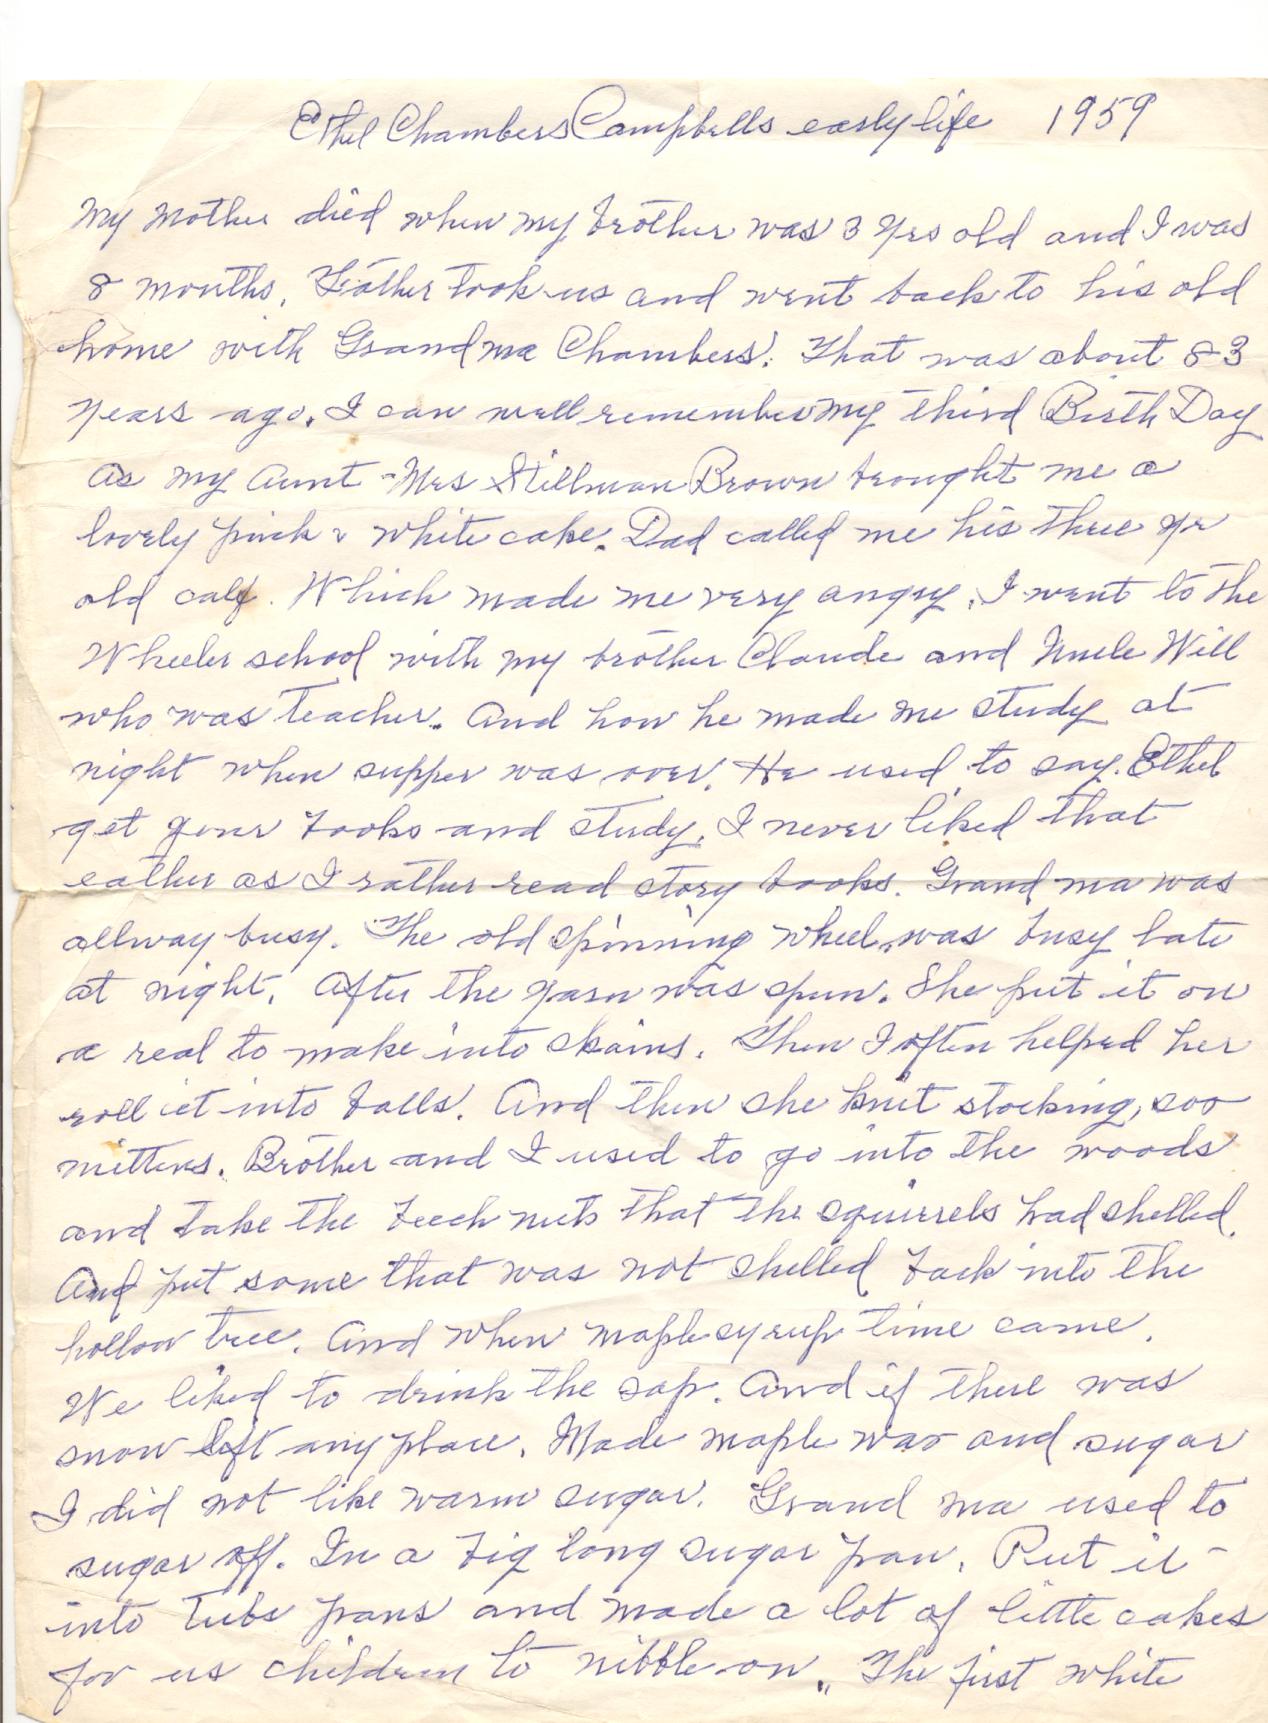 Ethel Chambers Campbells early life 1959
My Mother died when my brother was 3 yrs old and I was
8 months. Father took us and went back to his old
home with Grandma Chambers. That was about 83
years ago. I can well remember my third Birth Day
as my Aunt Mrs Stillman Brown brought me a
lovely pink & white cake. Dad called me his three yr
old calf. Which made me very angry. I went to the
Wheeler school with my brother Claude and Uncle Will
who was teacher. And how he made me study at
night when supper was over. He used to say. Ethel
get your books and study. I never liked that
eather as I rather read story books. Grand ma was
allway busy. The old spinning wheel was busy late
at night. After the yarn was spun. She put it on
a real to make into skains. Then I often helped her
roll it into balls. And then she knit stocking, soo
mittens. Brother and I used to go into the woods
and take the beech nuts that the squirrels had shelled.
And put some that was not shelled back into the
hollow tree. And when maple syrup time came.
We liked to drink the sap. And if there was
snow left any place. Made maple wax and sugar
I did not like warm sugar. Grand ma used to
sugar off. In a big long sugar pan. Put it
into tubs pans and made a lot of little cakes
for us children to nibble on. The first white